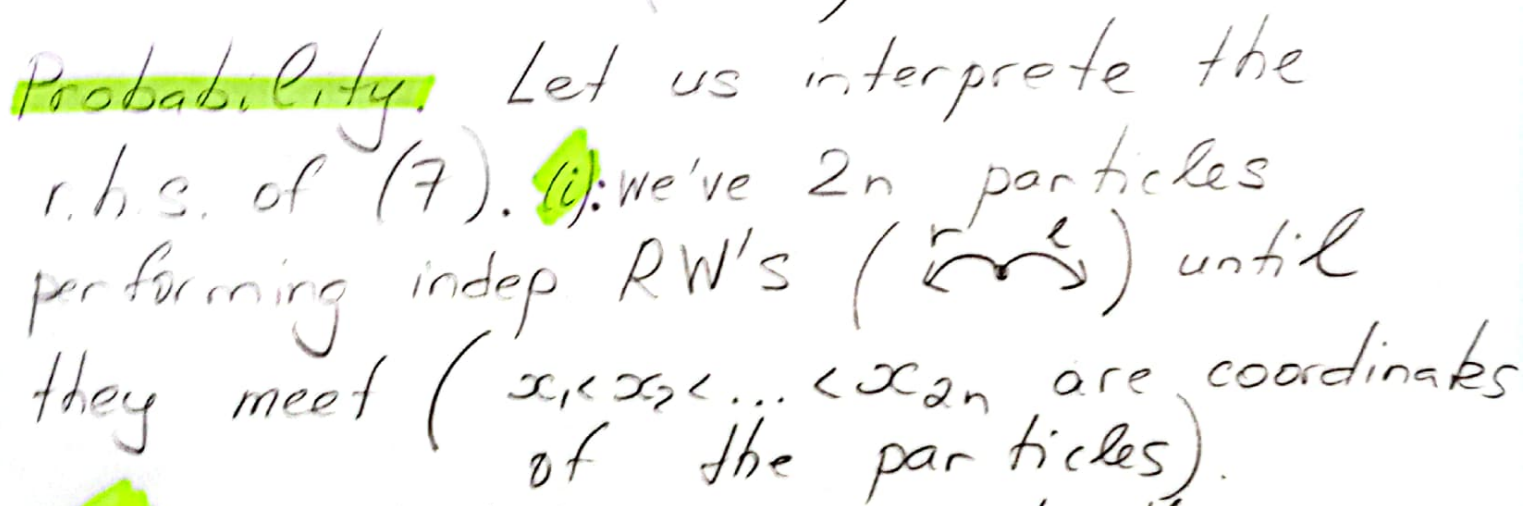 Probability. Let us interprete the
r.h.s. of (7). (i): we've 2n particles
performing indep RW's ( r l ) until
they meet ( x₁<x₂<...<x₂ₙ are coordinates
of the particles).